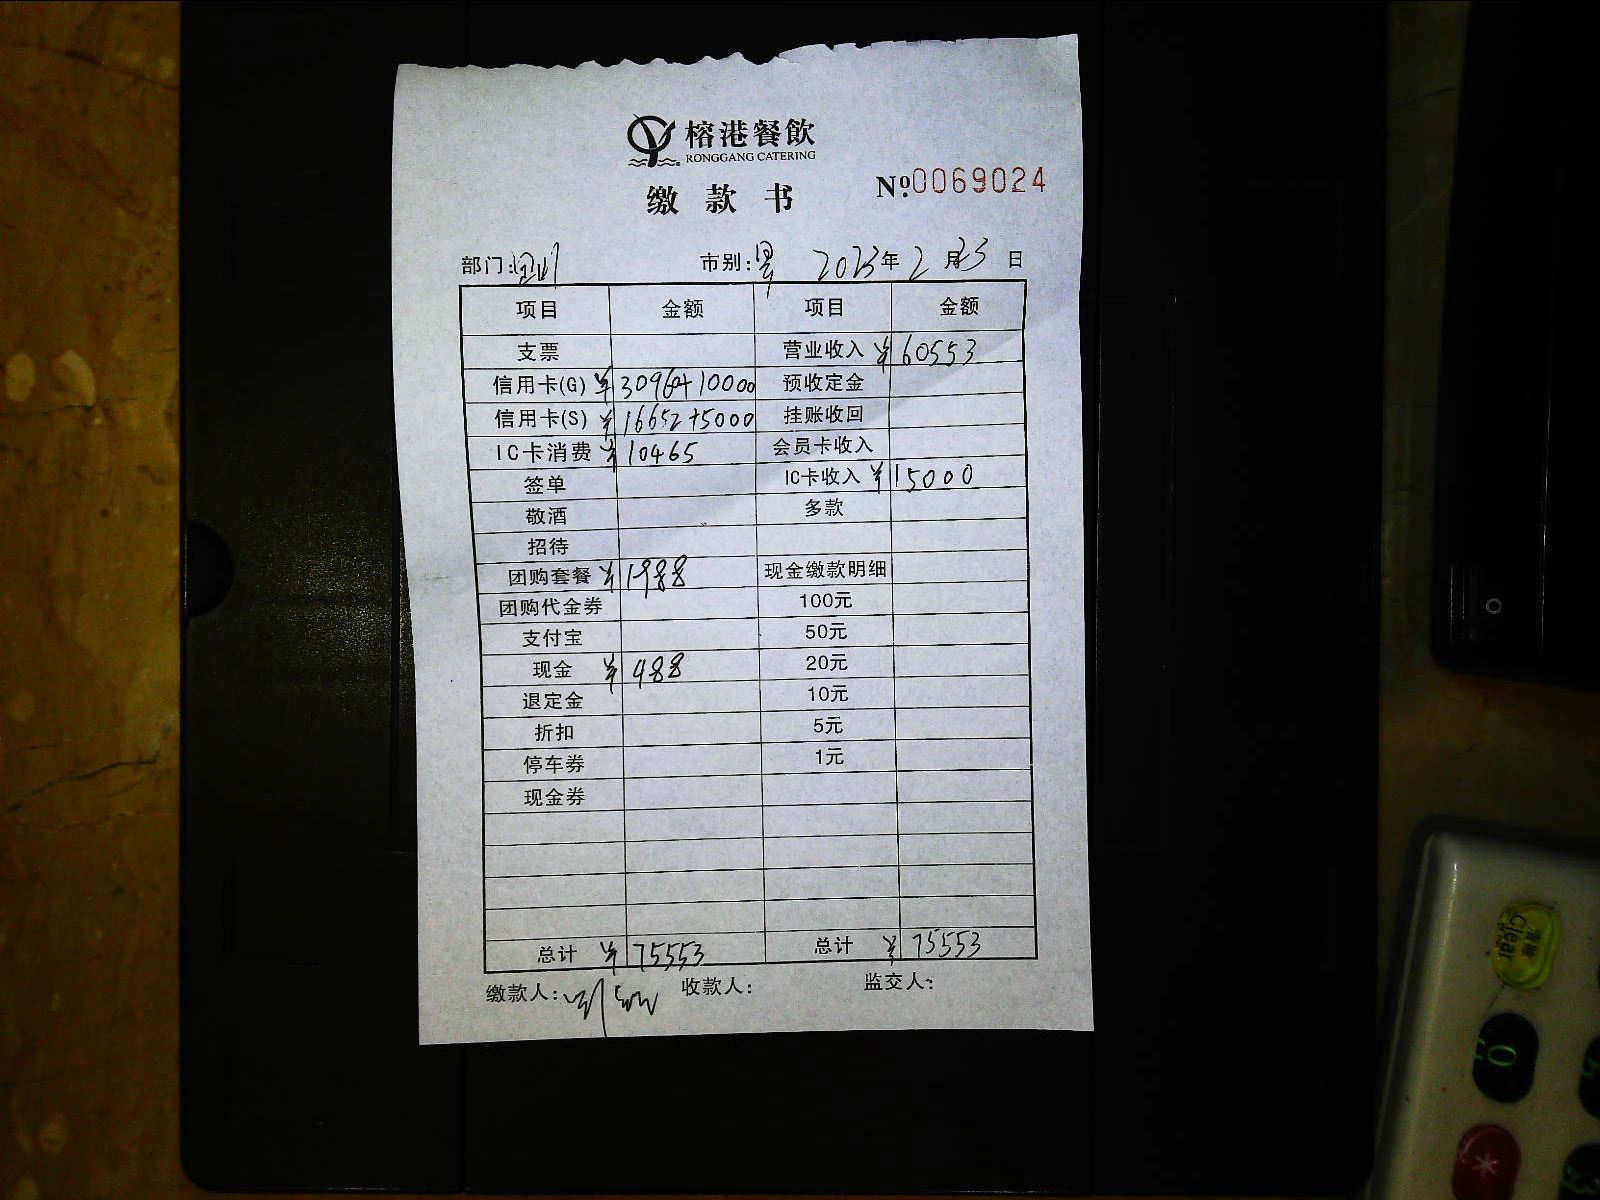 榕港餐飲
RONGGANG CATERING
缴款书 №0069024
部门: 市别: 2023年2月23日
项目 金额 项目 金额
支票 营业收入 ¥60553
信用卡(G) ¥30960+10000 预收定金
信用卡(S) ¥16652+5000 挂账收回
IC卡消费 ¥10465 会员卡收入
签单 IC卡收入 ¥15000
敬酒 多款
招待
团购套餐 ¥1988 现金缴款明细
团购代金券 100元
支付宝 50元
现金 ¥488 20元
退定金 10元
折扣 5元
停车券 1元
现金券
总计 ¥75553 总计 ¥75553
缴款人: 收款人: 监交人:
清除
Clear
0
*